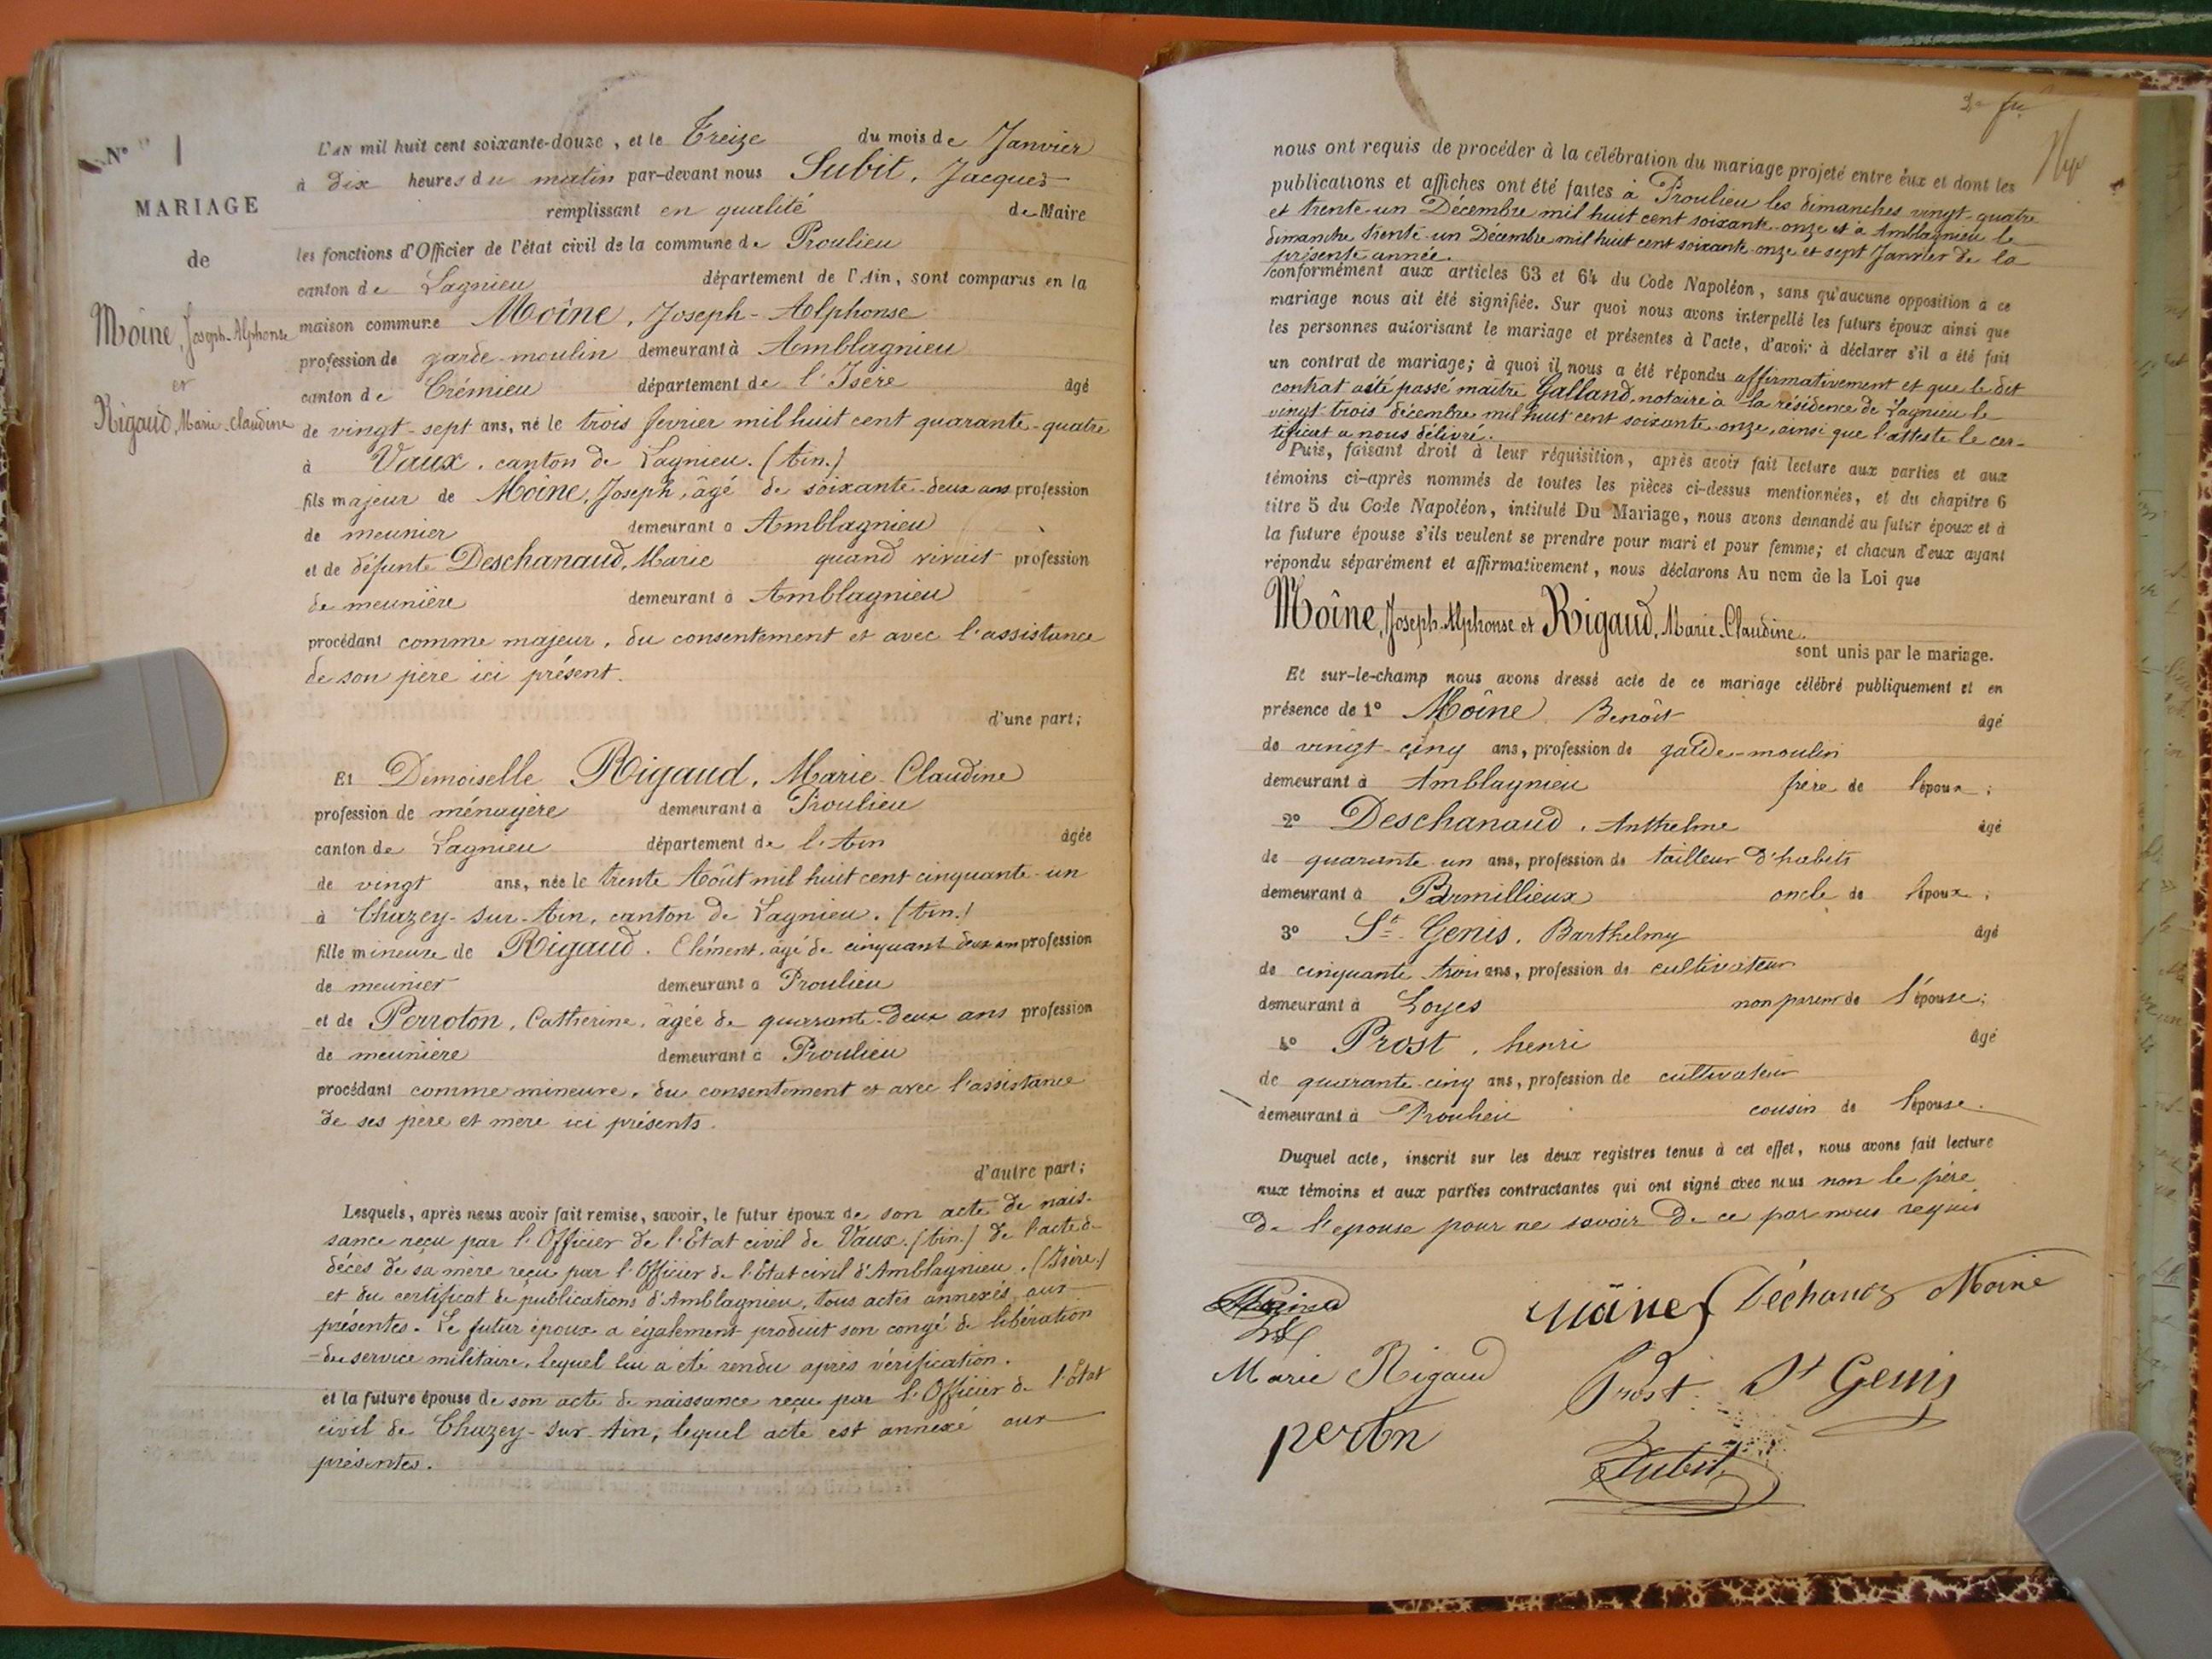 N° 1
MARIAGE
de
Moîne, Joseph-Alphonse
et
Rigaud, Marie-Claudine
L'AN mil huit cent soixante-douze, et le Treize du mois de Janvier
à dix heures du matin par-devant nous Subit, Jacques
remplissant en qualité de Maire
les fonctions d'Officier de l'état civil de la commune de Proulieu
canton de Lagnieu département de l'Ain, sont comparus en la
maison commune Moîne, Joseph-Alphonse
profession de garde-moulin demeurant à Amblagnieu
canton de Crémieu département de l'Isère âgé
de vingt-sept ans, né le trois fevrier mil huit cent quarante-quatre
à Vaux, canton de Lagnieu. (Ain.)
fils majeur de Moîne, Joseph, âgé de soixante-deux ans profession
de meunier demeurant à Amblagnieu
et de défunte Deschanaud, Marie quand vivait profession
de meunière demeurant à Amblagnieu
procédant comme majeur, du consentement et avec l'assistance
de son père ici présent.
d'une part;
Et Demoiselle Rigaud, Marie-Claudine
profession de ménagère demeurant à Proulieu
canton de Lagnieu département de l'Ain âgée
de vingt ans, née le trente Août mil huit cent cinquante-un
à Chazey-sur-Ain, canton de Lagnieu. (Ain.)
fille mineure de Rigaud, Clément, âgé de cinquant deux ans profession
de meunier demeurant à Proulieu
et de Perroton, Catherine, âgée de quarante-deux ans profession
de meunière demeurant à Proulieu
procédant comme mineure, du consentement et avec l'assistance
de ses père et mère ici présents.
d'autre part;
Lesquels, après nous avoir fait remise, savoir, le futur époux de son acte de nais-
sance reçu par l'Officier de l'Etat civil de Vaux. (Ain.) de l'acte de
décès de sa mère reçu par l'Officier de l'Etat civil d'Amblagnieu. (Isère.)
et du certificat de publications d'Amblagnieu, tous actes annexés aux
présentes. Le futur époux a également produit son congé de libération
du service militaire, lequel lui a été rendu après vérification.
et la future épouse de son acte de naissance reçu par l'Officier de l'Etat
civil de Chazey-sur-Ain, lequel acte est annexé aux
présentes.
nous ont requis de procéder à la célébration du mariage projeté entre eux et dont les
publications et affiches ont été faites à Proulieu les dimanches vingt-quatre
et trente-un Décembre mil huit cent soixante-onze et à Amblagnieu le
dimanche trente-un Décembre mil huit cent soixante-onze et sept Janvier de la
présente année.
conformément aux articles 63 et 64 du Code Napoléon, sans qu'aucune opposition à ce
mariage nous ait été signifiée. Sur quoi nous avons interpellé les futurs époux ainsi que
les personnes autorisant le mariage et présentes à l'acte, d'avoir à déclarer s'il a été fait
un contrat de mariage; à quoi il nous a été répondu affirmativement et que le dit
contrat a été passé maître Galland, notaire à la résidence de Lagnieu le
vingt-trois décembre mil huit cent soixante-onze, ainsi que l'atteste le cer-
tificat a nous délivré.
Puis, faisant droit à leur réquisition, après avoir fait lecture aux parties et aux
témoins ci-après nommés de toutes les pièces ci-dessus mentionnées, et du chapitre 6
titre 5 du Code Napoléon, intitulé Du Mariage, nous avons demandé au futur époux et à
la future épouse s'ils veulent se prendre pour mari et pour femme; et chacun d'eux ayant
répondu séparément et affirmativement, nous déclarons Au nom de la Loi que
Moîne, Joseph-Alphonse et Rigaud, Marie-Claudine.
sont unis par le mariage.
Et sur-le-champ nous avons dressé acte de ce mariage célébré publiquement et en
présence de 1° Moîne Benoît âgé
de vingt-cinq ans, profession de garde-moulin
demeurant à Amblagnieu frère de l'époux;
2° Deschanaud, Anthelme âgé
de quarante-un ans, profession de tailleur d'habits
demeurant à Parmillieux oncle de l'époux;
3° St Genis, Barthelmy âgé
de cinquante trois ans, profession de cultivateur
demeurant à Loyes non parent de l'épouse;
4° Prost, henri âgé
de quarante-cinq ans, profession de cultivateur
demeurant à Proulieu cousin de l'épouse.
Duquel acte, inscrit sur les deux registres tenus à cet effet, nous avons fait lecture
aux témoins et aux parties contractantes qui ont signé avec nous non le père
de l'epouse pour ne savoir De ce par nous requis
Moine
Marie Rigaud
Prost St Genis
perton
Subit